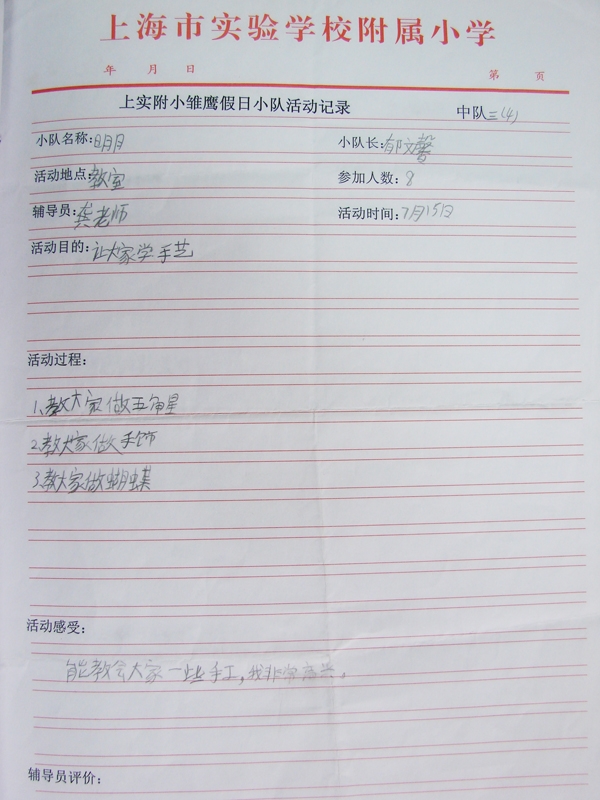 上海市实验学校附属小学
年 月 日 第 页
上实附小雏鹰假日小队活动记录 中队三(4)
小队名称:明月 小队长:郁文馨
活动地点:教室 参加人数:8
辅导员:龚老师 活动时间:7月15日
活动目的:让大家学手艺
活动过程:
1、教大家做五角星
2、教大家做手饰
3、教大家做蝴蝶
活动感受:
能教会大家一些手工,我非常高兴。
辅导员评价: